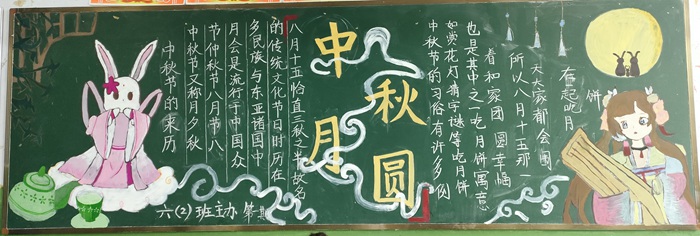 中秋节的来历
中秋节又称月夕秋
节仲秋节八月节八
月会是流行于中国众
多民族与东亚诸国中
的传统文化节日时历在
八月十五恰直三秋之半故名
中秋
月圆
中秋节的习俗有许多例
如赏花灯猜字谜等吃月饼
也是其中之一吃月饼寓意
着和家团圆幸福
所以八月十五那一
天大家都会围
在起吃月
饼
六(2)班主办 第期